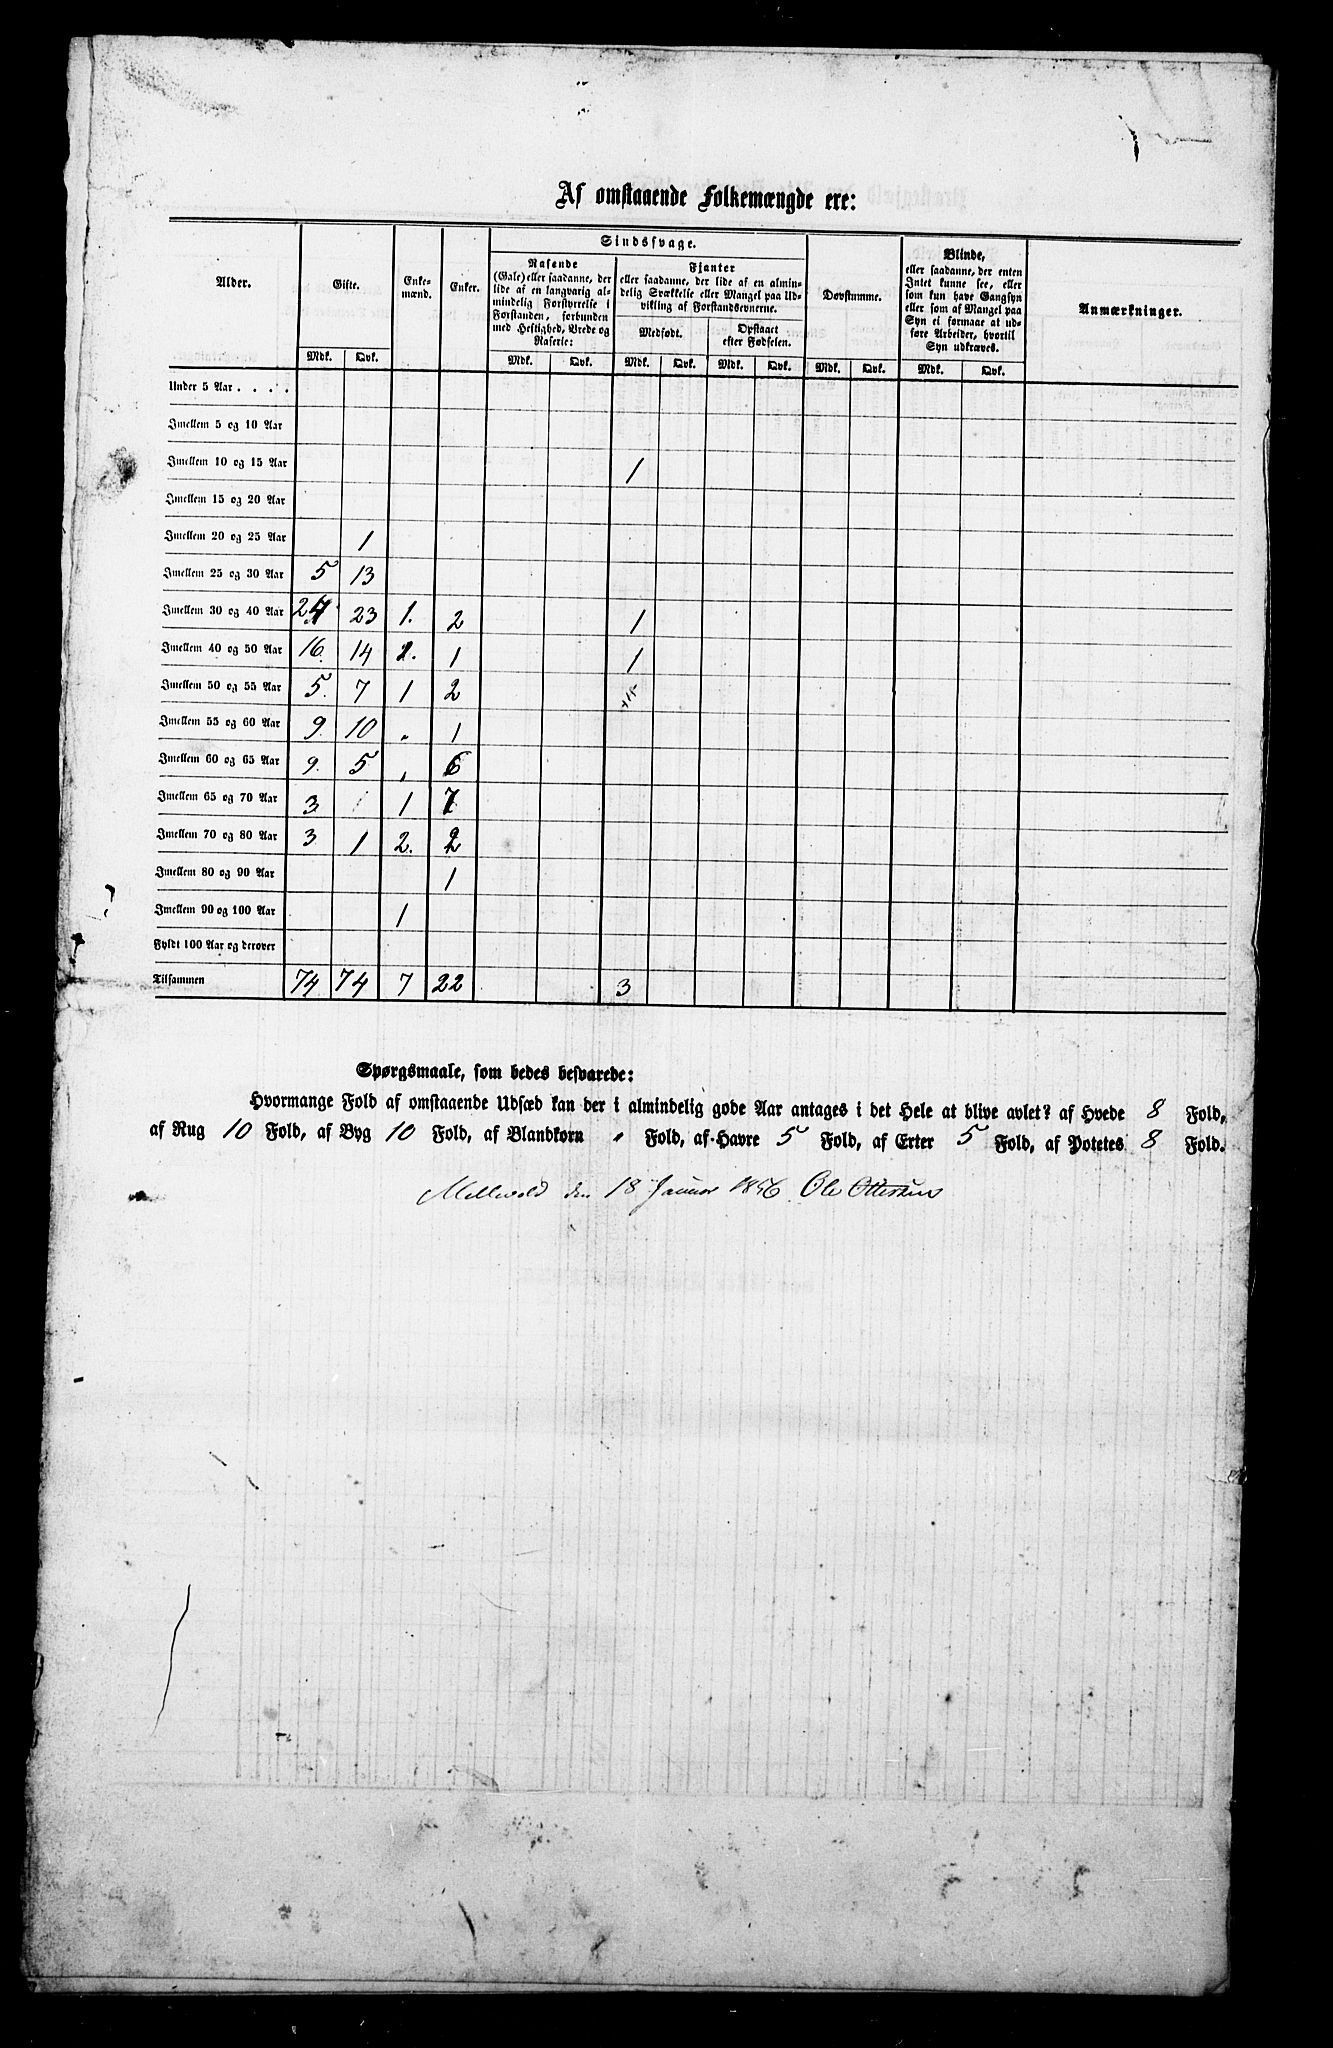 Af omstaaende Folkemængde ere:
Alder. Gifte. Enke-mænd. Enker. Sindssvage. Døvstumme. Blinde, eller saadanne, der enten Intet kunne see, eller som kun have Gangsyn eller som af Mangel paa Syn ei formaae at udføre Arbeider, hvortil Syn udkræves. Anmærkninger.
Rasende (Gale) eller saadanne, der lide af en langvarig almindelig Forstyrrelse i Forstanden, forbunden med Heftighed, Vrede og Raserie:
Fjanter eller saadanne, der lide af en almindelig Svækkelse eller Mangel paa Udvikling af Forstandsevnerne.
Medfødt. Opstaaet efter Fødselen.
Mdk. Qvk. Mdk. Qvk. Mdk. Qvk. Mdk. Qvk. Mdk. Qvk. Mdk. Qvk.
Under 5 Aar . . . .
Imellem 5 og 10 Aar
Imellem 10 og 15 Aar 1
Imellem 15 og 20 Aar
Imellem 20 og 25 Aar 1
Imellem 25 og 30 Aar 5 13
Imellem 30 og 40 Aar 24 23 1. 2 1
Imellem 40 og 50 Aar 16. 14 1. 1 1
Imellem 50 og 55 Aar 5. 7 1 2
Imellem 55 og 60 Aar 9. 10 „ 1
Imellem 60 og 65 Aar 9. 5 „ 6
Imellem 65 og 70 Aar 3 1 7
Imellem 70 og 80 Aar 3 1 2. 2
Imellem 80 og 90 Aar 1
Imellem 90 og 100 Aar 1
Fyldt 100 Aar og derover
Tilsammen 74 74 7 22 3
Spørgsmaale, som bedes besvarede:
Hvormange Fold af omstaaende Udsæd kan der i almindelig gode Aar antages i det Hele at blive avlet? af Hvede 8 Fold,
af Rug 10 Fold, af Byg 10 Fold, af Blandkorn „ Fold, af Havre 5 Fold, af Erter 5 Fold, af Potetes 8 Fold.
den 18 Januar 1856 Ole